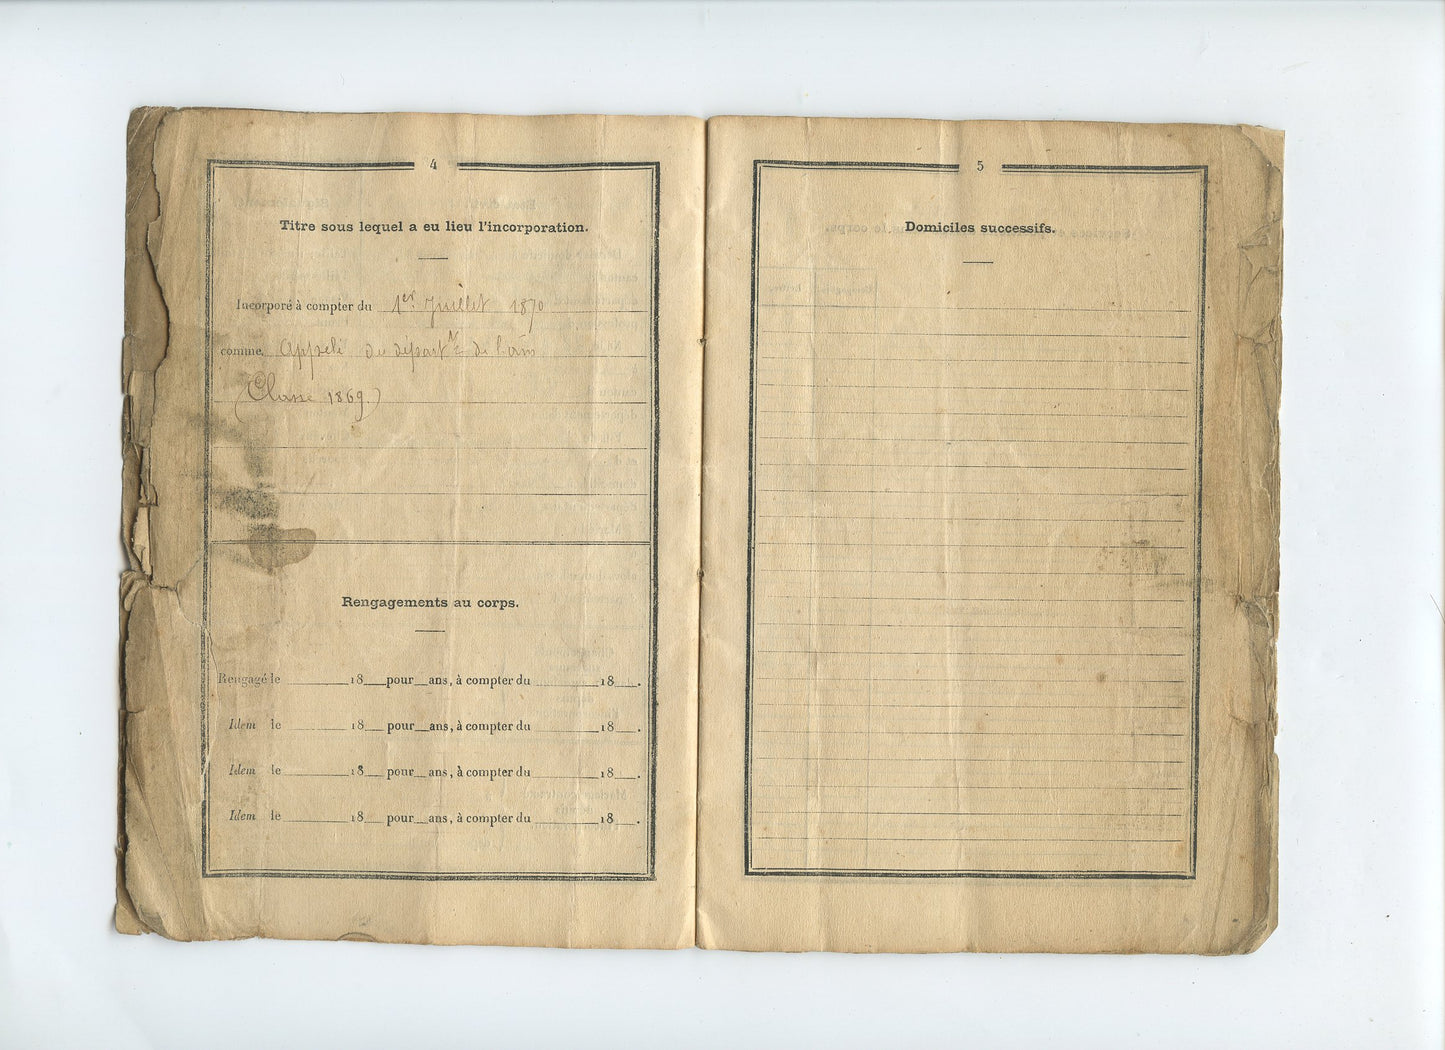 4
Titre sous lequel a eu lieu l'incorporation.
Incorporé à compter du 1er Juillet 1870
comme Appelé du départt de l'ain
(Classe 1869.)
Rengagements au corps.
Rengagé le ______ 18__ pour __ ans, à compter du ______ 18__.
Idem le ______ 18__ pour __ ans, à compter du ______ 18__.
Idem le ______ 18__ pour __ ans, à compter du ______ 18__.
Idem le ______ 18__ pour __ ans, à compter du ______ 18__.
5
Domiciles successifs.